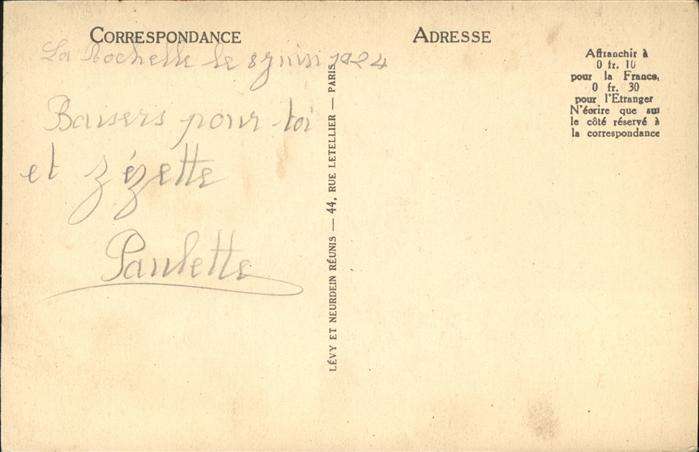 CORRESPONDANCE
La Rochelle le 8 juin 1924
Baisers pour toi
et Zézette
Paulette
LÉVY ET NEURDEIN RÉUNIS — 44, RUE LETELLIER — PARIS.
ADRESSE
Affranchir à
0 fr. 10
pour la France,
0 fr. 30
pour l'Etranger
N'écrire que sur
le côté réservé à
la correspondance